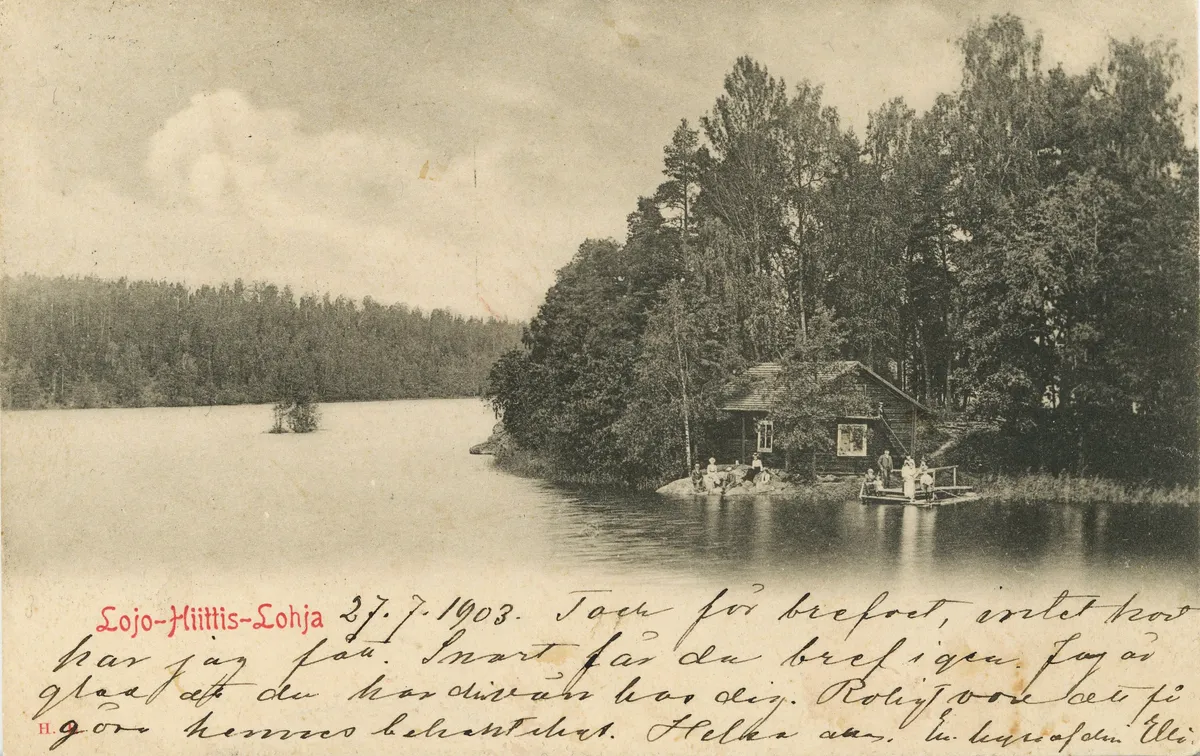 Lojo-Hiittis-Lohja 27.7.1903. Tack för brefvet, intet kort
har jag fått. Snart får du bref igen. Jag är
glad att du har din vän hos dig. Roligt vore att få
göra hennes bekantskap. Helsa alla. En kyss af din Elli
H.